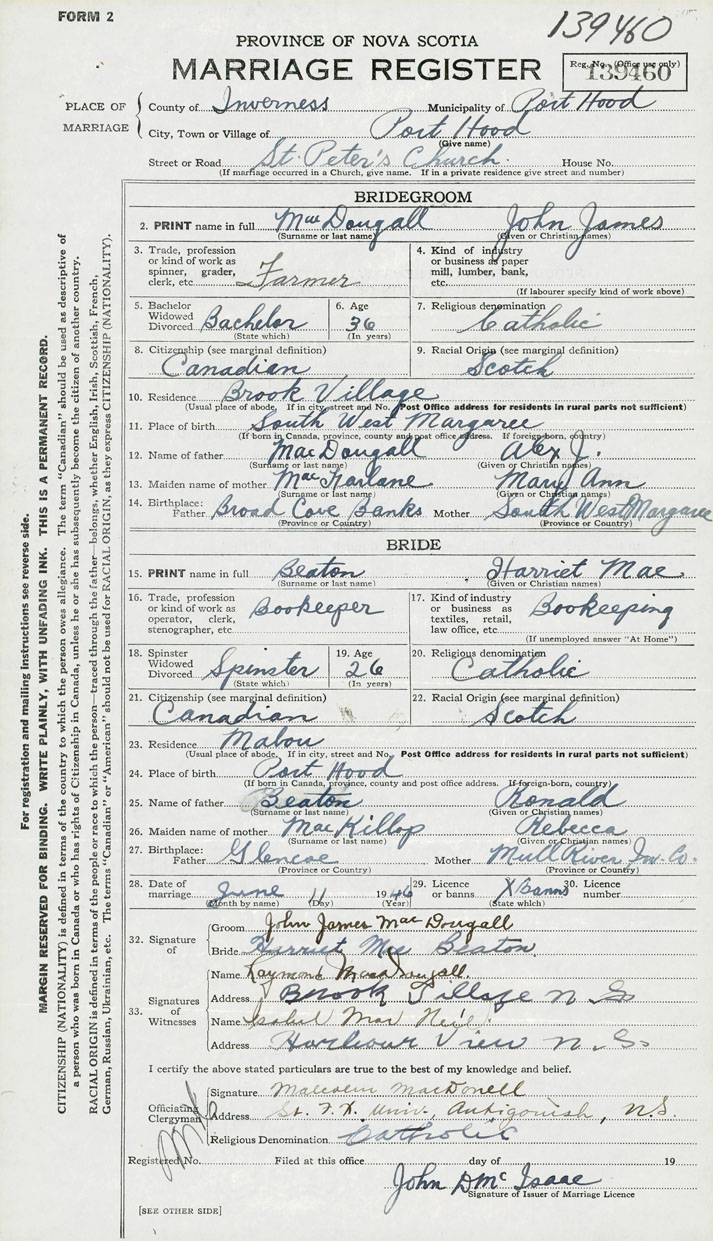 FORM 2
139460
PROVINCE OF NOVA SCOTIA
MARRIAGE REGISTER
Reg. No. (Office use only)
139460
PLACE OF MARRIAGE
County of Inverness Municipality of Port Hood
City, Town or Village of Port Hood
(Give name)
Street or Road St. Peter's Church. House No.
(If marriage occurred in a Church, give name. If in a private residence give street and number)
BRIDEGROOM
2. PRINT name in full MacDougall John James
(Surname or last name) (Given or Christian names)
3. Trade, profession or kind of work as spinner, grader, clerk, etc. Farmer
4. Kind of industry or business as paper mill, lumber, bank, etc.
(If labourer specify kind of work above)
5. Bachelor Widowed Divorced Bachelor
(State which)
6. Age 36
(In years)
7. Religious denomination Catholic
8. Citizenship (see marginal definition) Canadian
9. Racial Origin (see marginal definition) Scotch
10. Residence Brook Village
(Usual place of abode. If in city, street and No. Post Office address for residents in rural parts not sufficient)
11. Place of birth South West Margaree
(If born in Canada, province, county and post office address. If foreign-born, country)
12. Name of father MacDougall Alex J.
(Surname or last name) (Given or Christian names)
13. Maiden name of mother MacFarlane Mary Ann
(Surname or last name) (Given or Christian names)
14. Birthplace: Father Broad Cove Banks Mother South West Margaree
(Province or Country) (Province or Country)
BRIDE
15. PRINT name in full Beaton Harriet Mae.
(Surname or last name) (Given or Christian names)
16. Trade, profession or kind of work as operator, clerk, stenographer, etc. Bookeeper
17. Kind of industry or business as textiles, retail, law office, etc. Bookeeping
(If unemployed answer "At Home")
18. Spinster Widowed Divorced Spinster
(State which)
19. Age 26
(In years)
20. Religious denomination Catholic
21. Citizenship (see marginal definition) Canadian
22. Racial Origin (see marginal definition) Scotch
23. Residence Mabou
(Usual place of abode. If in city, street and No. Post Office address for residents in rural parts not sufficient)
24. Place of birth Port Hood
(If born in Canada, province, county and post office address. If foreign-born, country)
25. Name of father Beaton Ronald
(Surname or last name) (Given or Christian names)
26. Maiden name of mother MacKillop Rebecca
(Surname or last name) (Given or Christian names)
27. Birthplace: Father Glencoe Mother Mull River Inv. Co.
(Province or Country) (Province or Country)
28. Date of marriage June 11 1946
(Month by name) (Day) (Year)
29. Licence or banns X Banns
(State which)
30. Licence number
32. Signature of
Groom John James MacDougall
Bride Harriet Mae Beaton
33. Signatures of Witnesses
Name Raymond MacDougall.
Address Brook Village N S
Name Isabel MacNeil
Address Harbour View N. S.
I certify the above stated particulars are true to the best of my knowledge and belief.
Officiating Clergyman
Signature Malcolm MacDonell
Address St. F. X. Univ., Antigonish, N.S.
Religious Denomination Catholic
Registered No. Filed at this office day of 19
John D Mc Isaac
Signature of Issuer of Marriage Licence
[SEE OTHER SIDE]
For registration and mailing instructions see reverse side.
MARGIN RESERVED FOR BINDING. WRITE PLAINLY, WITH UNFADING INK. THIS IS A PERMANENT RECORD.
CITIZENSHIP (NATIONALITY) is defined in terms of the country to which the person owes allegiance. The term "Canadian" should be used as descriptive of
a person who was born in Canada or who has rights of Citizenship in Canada, unless he or she has subsequently become the citizen of another country.
RACIAL ORIGIN is defined in terms of the people or race to which the person—traced through the father—belongs, whether English, Irish, Scottish, French,
German, Russian, Ukrainian, etc. The terms "Canadian" or "American" should not be used for RACIAL ORIGIN, as they express CITIZENSHIP (NATIONALITY).